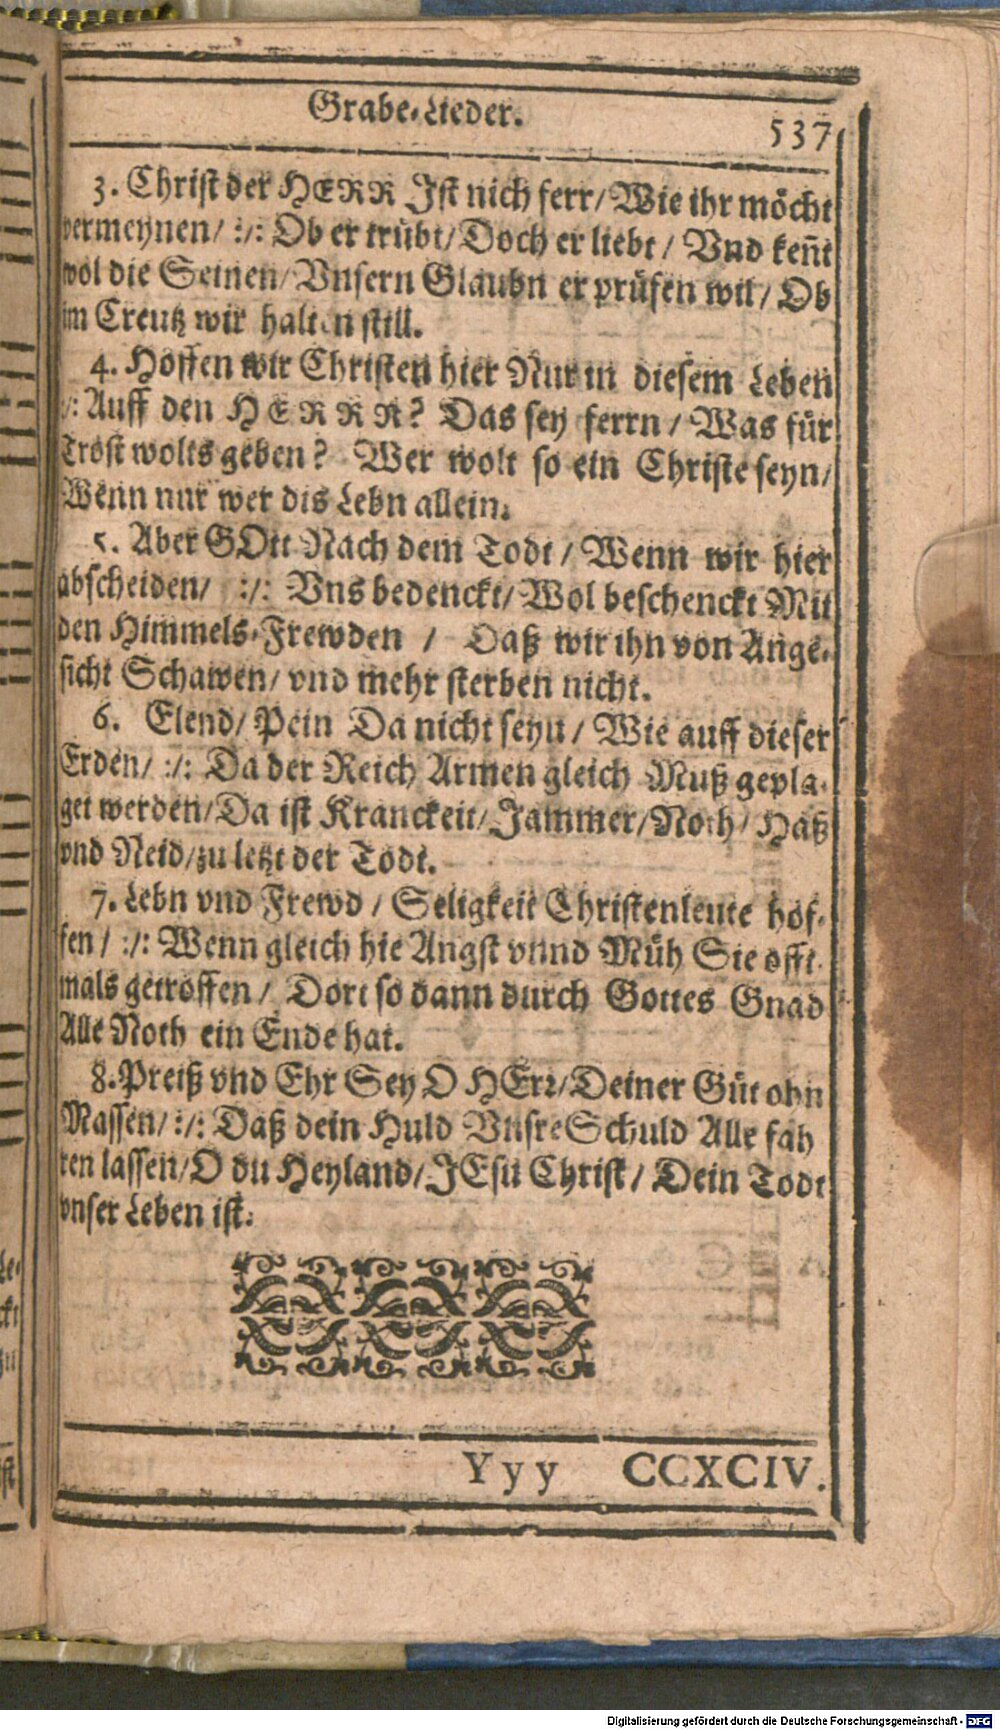 Grabe-Lieder.
537
3. Christ der HERR Jst nich ferr/ Wie ihr möcht
vermeynen/ :/: Ob er trübt/ Doch er liebt / Vnd keñt
wol die Seinen/ Vnsern Glaubn er prüfen wil/ Ob
im Creutz wir halten still.
4. Hoffen wir Christen hier Nur in diesem Leben
:/: Auff den HERRN? Das sey ferrn / Was für
Trost wolts geben? Wer wolt so ein Christe seyn/
Wenn nur wer dis Lebn allein.
5. Aber GOtt Nach dem Todt / Wenn wir hier
abscheiden/ :/: Vns bedenckt/ Wol beschenckt Mit
den Himmels-Frewden / Daß wir ihn von Ange-
sicht Schawen/ vnd mehr sterben nicht.
6. Elend/ Pein Da nicht seyn / Wie auff dieser
Erden/ :/: Da der Reich Armen gleich Muß gepla-
get werden/ Da ist Kranckeit/ Jammer/ Noth/ Haß
vnd Neid/ zu letzt der Todt.
7. Lebn vnd Frewd / Seligkeit Christenleute hof-
fen / :/: Wenn gleich hie Angst vnnd Müh Sie offt-
mals getroffen / Dort so dann durch Gottes Gnad
Alle Noth ein Ende hat.
8. Preiß vnd Ehr Sey O HErr/ Deiner Güt ohn
Massen/ :/: Daß dein Huld Vnsre Schuld Alle fah
ren lassen/ O du Heyland/ JEsu Christ / Dein Todt
vnser Leben ist.
Yyy CCXCIV.
Digitalisierung gefördert durch die Deutsche Forschungsgemeinschaft - DFG